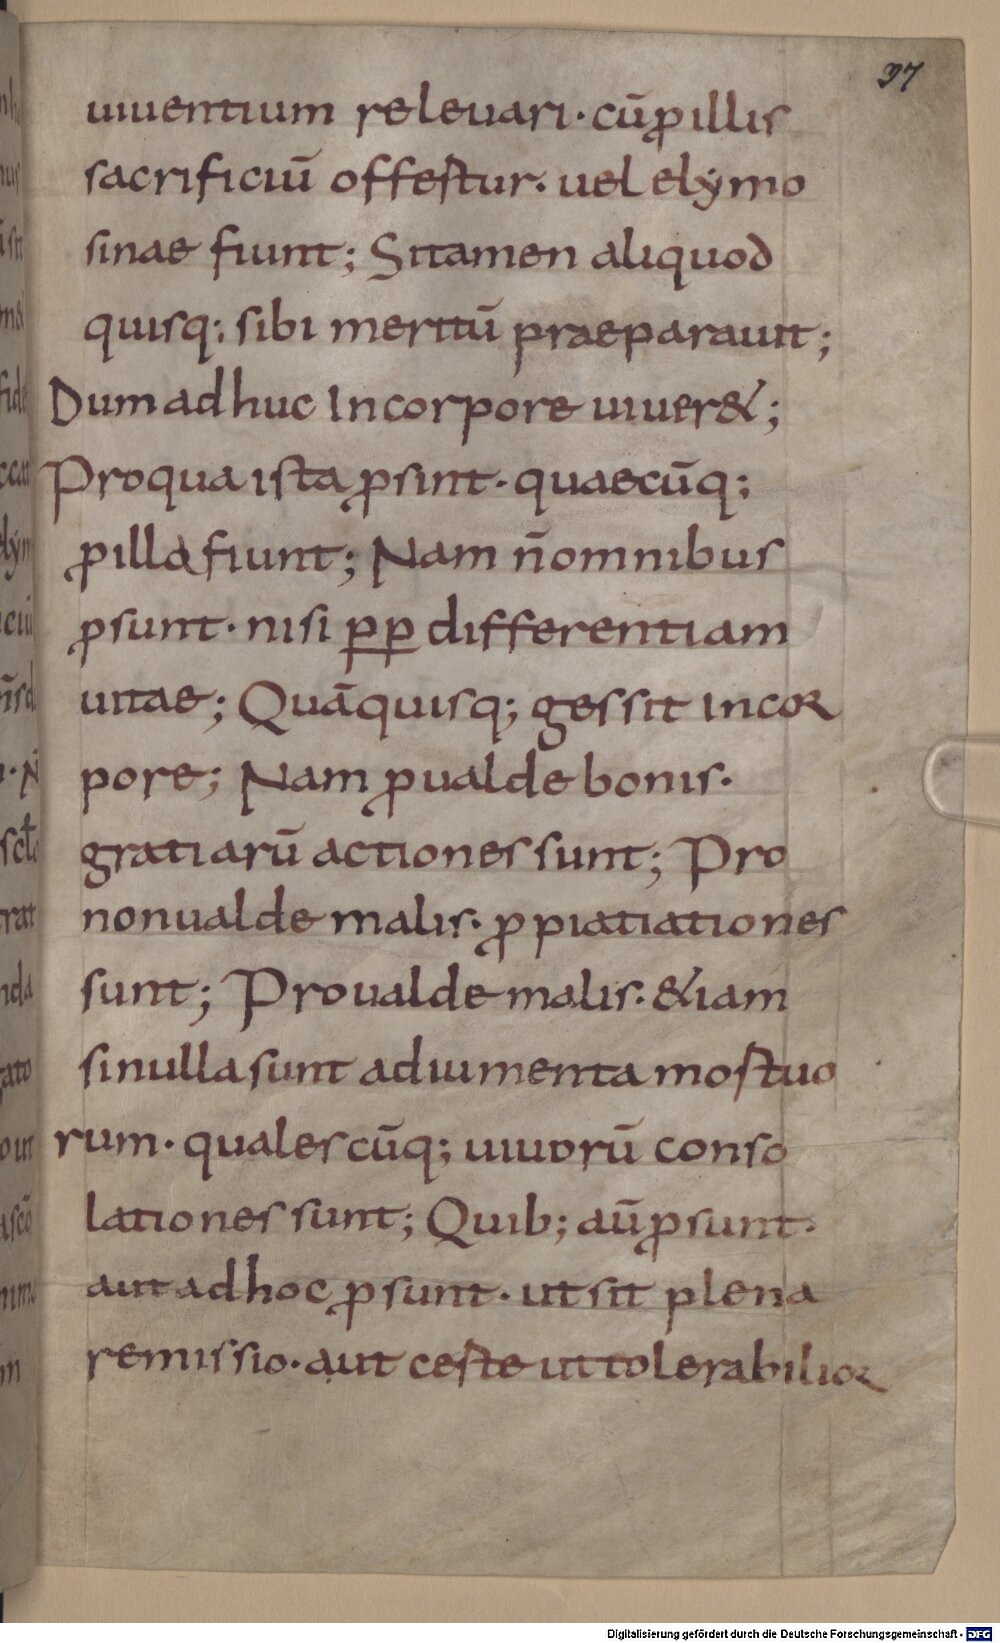 37
uiuentium releuari· cū ꝓillis
sacrificiū offertur· uel elẏmo
sinae fiunt; Sitamen aliquod
quisq; sibi meritū praeparauit;
Dum adhuc In corpore uiuer&;
Pro qua ista ꝓsint· quaecūq;
ꝓ illa fiunt; Nam n̄ omnibus
ꝓsunt· nisi ꝑꝑ differentiam
uitae; Quā quisq; gessit in cor
pore; Nam ꝓ ualde bonis·
gratiarū actiones sunt; Pro
non ualde malis· ꝓpiatiationes
sunt; Pro ualde malis· &iam
si nulla sunt adiumenta mortuo
rum· qualescūq; uiuorū conso
lationes sunt; Quib; aū ꝓsunt·
aut ad hoc ꝓsunt· ut sit plena
remissio· aut certe ut tolerabilior
Digitalisierung gefördert durch die Deutsche Forschungsgemeinschaft - DFG